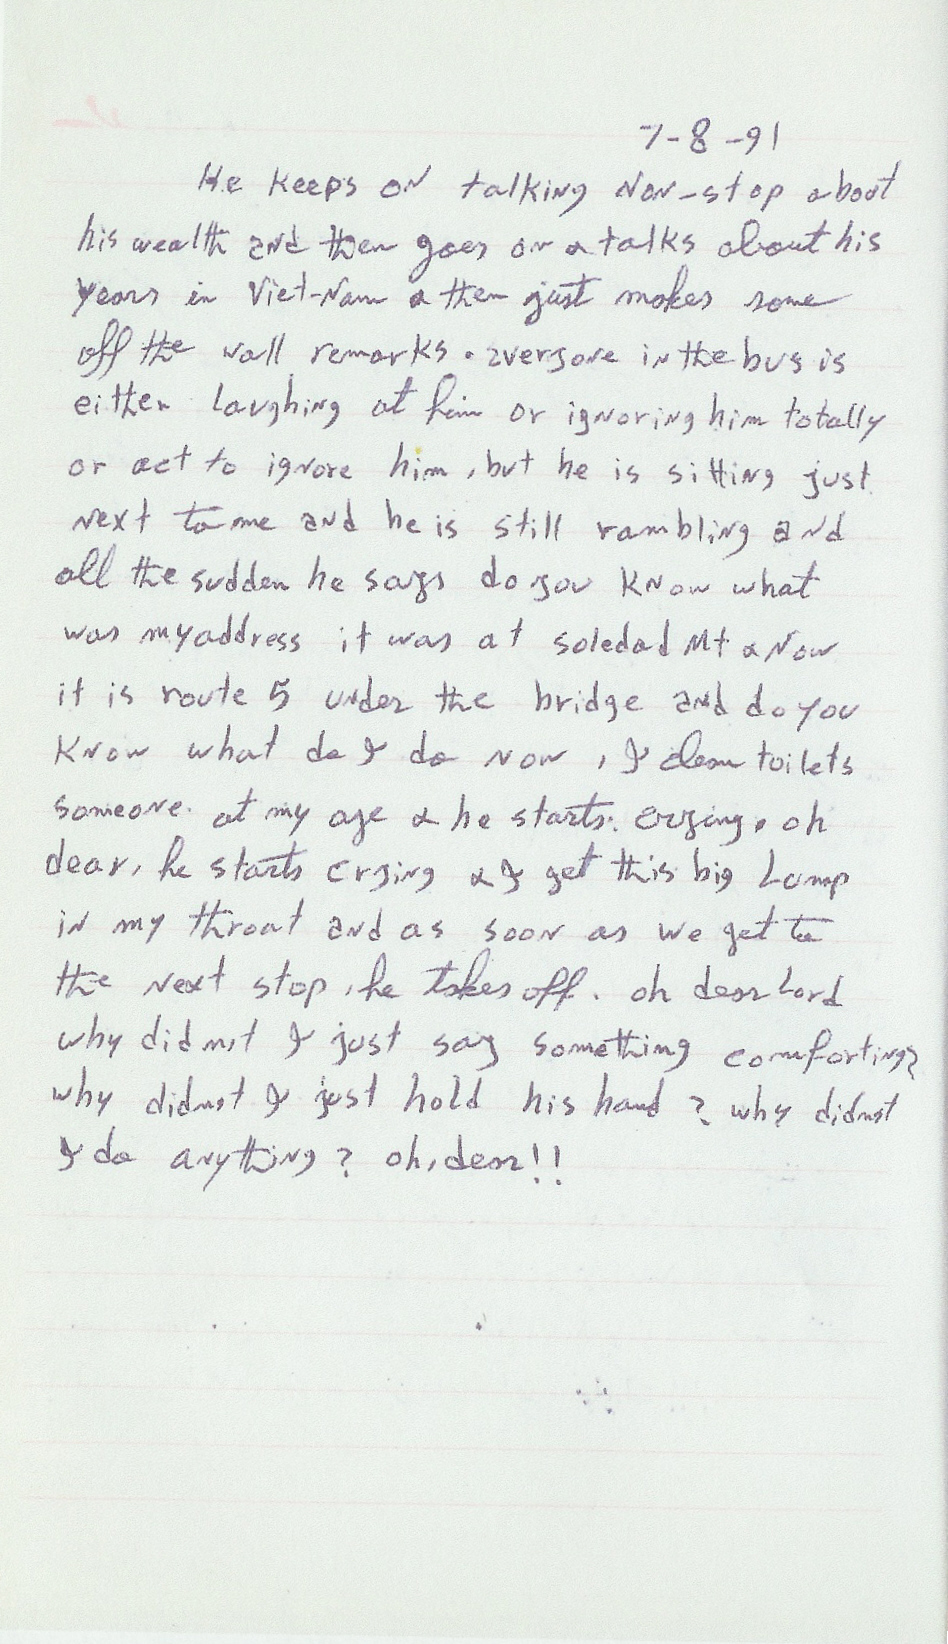 7-8-91
He keeps on talking non-stop about
his wealth and then goes on & talks about his
years in Viet-Nam & then just makes some
off the wall remarks. everyone in the bus is
either laughing at him or ignoring him totally
or act to ignore him, but he is sitting just
next to me and he is still rambling and
all the sudden he says do you know what
was my address it was at soledad Mt & now
it is route 5 under the bridge and do you
know what do I do now, I clean toilets
someone. at my age & he starts. crying. oh
dear, he starts crying & I get this big lump
in my throat and as soon as we get to
the next stop, he takes off. oh dear Lord
why did not I just say something comforting?
why didnot I just hold his hand? why didnot
I do anything? oh, dear!!